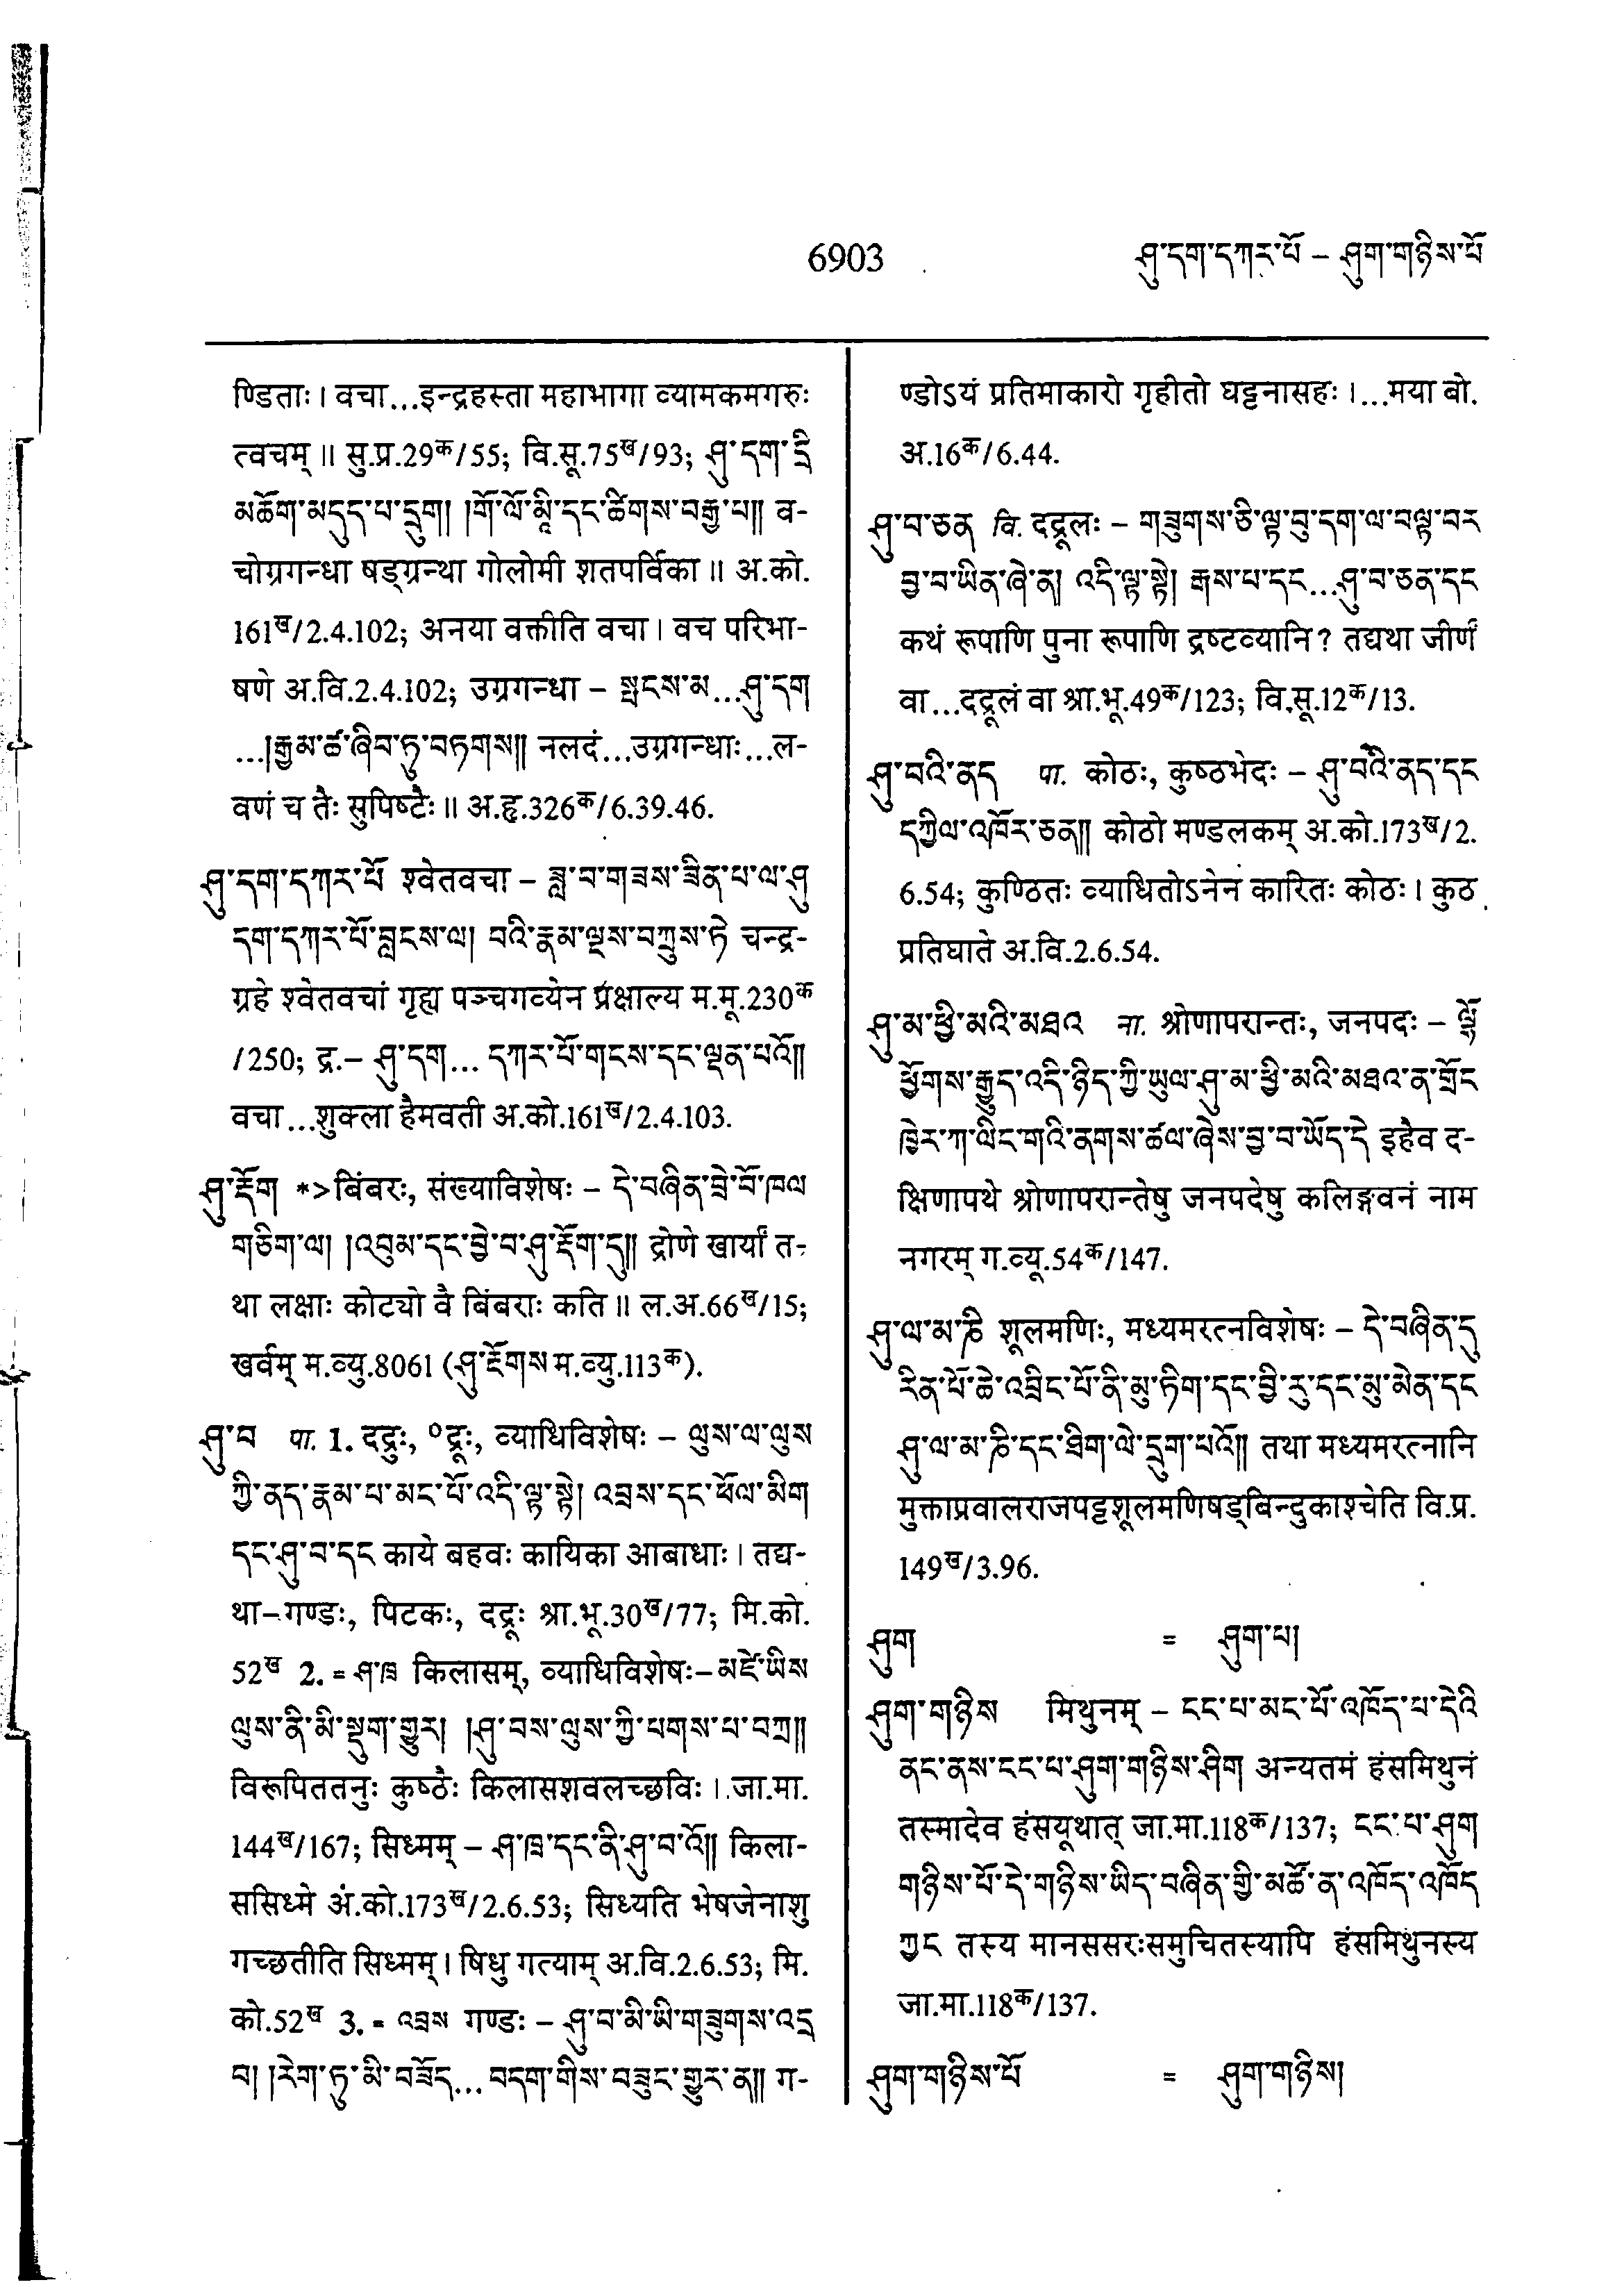 6903
ཤུ་དག་དཀར་པོ – ཤུག་གཉིས་པོ
ण्डिताः । वचा...इन्द्रहस्ता महाभागा व्यामकमगरुः
त्वचम् ॥ सु.प्र.29क/55; वि.सू.75ख/93; ཤུ་དག་དྲི
མཆོག་མདུད་པ་དྲུག། །གོ་ལོ་མཱི་དང་ཚིགས་བརྒྱ་པ།། व-
चोग्रगन्धा षड्ग्रन्था गोलोमी शतपर्विका ॥ अ.को.
161ख/2.4.102; अनया वक्तीति वचा । वच परिभा-
षणे अ.वि.2.4.102; उग्रगन्धा – སྤངས་མ...ཤུ་དག
...།རྒྱམ་ཚ་ཞིབ་ཏུ་བཏགས།། नलदं...उग्रगन्धाः...ल-
वणं च तैः सुपिष्टैः ॥ अ.हृ.326क/6.39.46.
ཤུ་དག་དཀར་པོ श्वेतवचा – ཟླ་བ་གཟས་ཟིན་པ་ལ་ཤུ
དག་དཀར་པོ་བླངས་ལ། བའི་རྣམ་ལྔས་བཀྲུས་ཏེ चन्द्र-
ग्रहे श्वेतवचां गृह्य पञ्चगव्येन प्रक्षाल्य म.मू.230क
/250; द्र.– ཤུ་དག... དཀར་པོ་གངས་དང་ལྡན་པའོ།།
वचा...शुक्ला हैमवती अ.को.161ख/2.4.103.
ཤུ་རྡོག *>बिंबरः, संख्याविशेषः – དེ་བཞིན་བྲེ་བོ་ཁལ
གཅིག་ལ། །འབུམ་དང་བྱེ་བ་ཤུ་རྡོག་དུ།། द्रोणे खार्यां त-
था लक्षाः कोट्यो वै बिंबराः कति ॥ ल.अ.66ख/15;
खर्वम् म.व्यु.8061 (ཤུ་རྡོགས म.व्यु.113क).
ཤུ་བ पा. 1. दद्रुः, ०द्रूः, व्याधिविशेषः – ལུས་ལ་ལུས
ཀྱི་ནད་རྣམ་པ་མང་པོ་འདི་ལྟ་སྟེ། འབྲས་དང་ཕོལ་མིག
དང་ཤུ་བ་དང काये बहवः कायिका आबाधाः । तद्य-
था–गण्डः, पिटकः, दद्रूः श्रा.भू.30ख/77; मि.को.
52ख 2. = ཤ་ཁྲ किलासम्, व्याधिविशेषः– མཛེ་ཡིས
ལུས་ནི་མི་སྡུག་གྱུར། །ཤུ་བས་ལུས་ཀྱི་པགས་པ་བཀྲ།།
विरूपिततनुः कुष्ठैः किलासशवलच्छविः । जा.मा.
144ख/167; सिध्मम् – ཤ་ཁྲ་དང་ནི་ཤུ་བ་འོ།། किला-
ससिध्मे अं.को.173ख/2.6.53; सिध्यति भेषजेनाशु
गच्छतीति सिध्मम् । षिधु गत्याम् अ.वि.2.6.53; मि.
को.52ख 3. = འབྲས गण्डः – ཤུ་བ་མི་ཡི་གཟུགས་འདྲ
བ། །རེག་ཏུ་མི་བཟོད... བདག་གིས་བཟུང་གྱུར་ན།། ग-
ण्डोऽयं प्रतिमाकारो गृहीतो घट्टनासहः ।...मया बो.
अ.16क/6.44.
ཤུ་བ་ཅན वि. दद्रूलः – གཟུགས་ཅི་ལྟ་བུ་དག་ལ་བལྟ་བར
བྱ་བ་ཡིན་ཞེ་ན། འདི་ལྟ་སྟེ། རྒས་པ་དང...ཤུ་བ་ཅན་དང
कथं रूपाणि पुना रूपाणि द्रष्टव्यानि? तद्यथा जीर्णं
वा...दद्रूलं वा श्रा.भू.49क/123; वि.सू.12क/13.
ཤུ་བའི་ནད पा. कोठः, कुष्ठभेदः – ཤུ་བའི་ནད་དང
དཀྱིལ་འཁོར་ཅན།། कोठो मण्डलकम् अ.को.173ख/2.
6.54; कुण्ठितः व्याधितोऽनेन कारितः कोठः । कुठ
प्रतिघाते अ.वि.2.6.54.
ཤུ་མ་ཕྱི་མའི་མཐའ ना. श्रोणापरान्तः, जनपदः – ལྷོ
ཕྱོགས་རྒྱུད་འདི་ཉིད་ཀྱི་ཡུལ་ཤུ་མ་ཕྱི་མའི་མཐའ་ན་གྲོང
ཁྱེར་ཀ་ལིང་གའི་ནགས་ཚལ་ཞེས་བྱ་བ་ཡོད་དེ इहैव द-
क्षिणापथे श्रोणापरान्तेषु जनपदेषु कलिङ्गवनं नाम
नगरम् ग.व्यू.54क/147.
ཤུ་ལ་མ་ཎི शूलमणिः, मध्यमरत्नविशेषः – དེ་བཞིན་དུ
རིན་པོ་ཆེ་འབྲིང་པོ་ནི་མུ་ཏིག་དང་བྱི་རུ་དང་མུ་མེན་དང
ཤུ་ལ་མ་ཎི་དང་ཐིག་ལེ་དྲུག་པའོ།། तथा मध्यमरत्नानि
मुक्ताप्रवालराजपट्टशूलमणिषड्बिन्दुकाश्चेति वि.प्र.
149ख/3.96.
ཤུག = ཤུག་པ།
ཤུག་གཉིས मिथुनम् – ངང་པ་མང་པོ་འཁོད་པ་དེའི
ནང་ནས་ངང་པ་ཤུག་གཉིས་ཤིག अन्यतमं हंसमिथुनं
तस्मादेव हंसयूथात् जा.मा.118क/137; ངང་པ་ཤུག
གཉིས་པོ་དེ་གཉིས་ཡིད་བཞིན་གྱི་མཚོ་ན་འཁོད་འཁོད
ཀྱང तस्य मानससरःसमुचितस्यापि हंसमिथुनस्य
जा.मा.118क/137.
ཤུག་གཉིས་པོ = ཤུག་གཉིས།